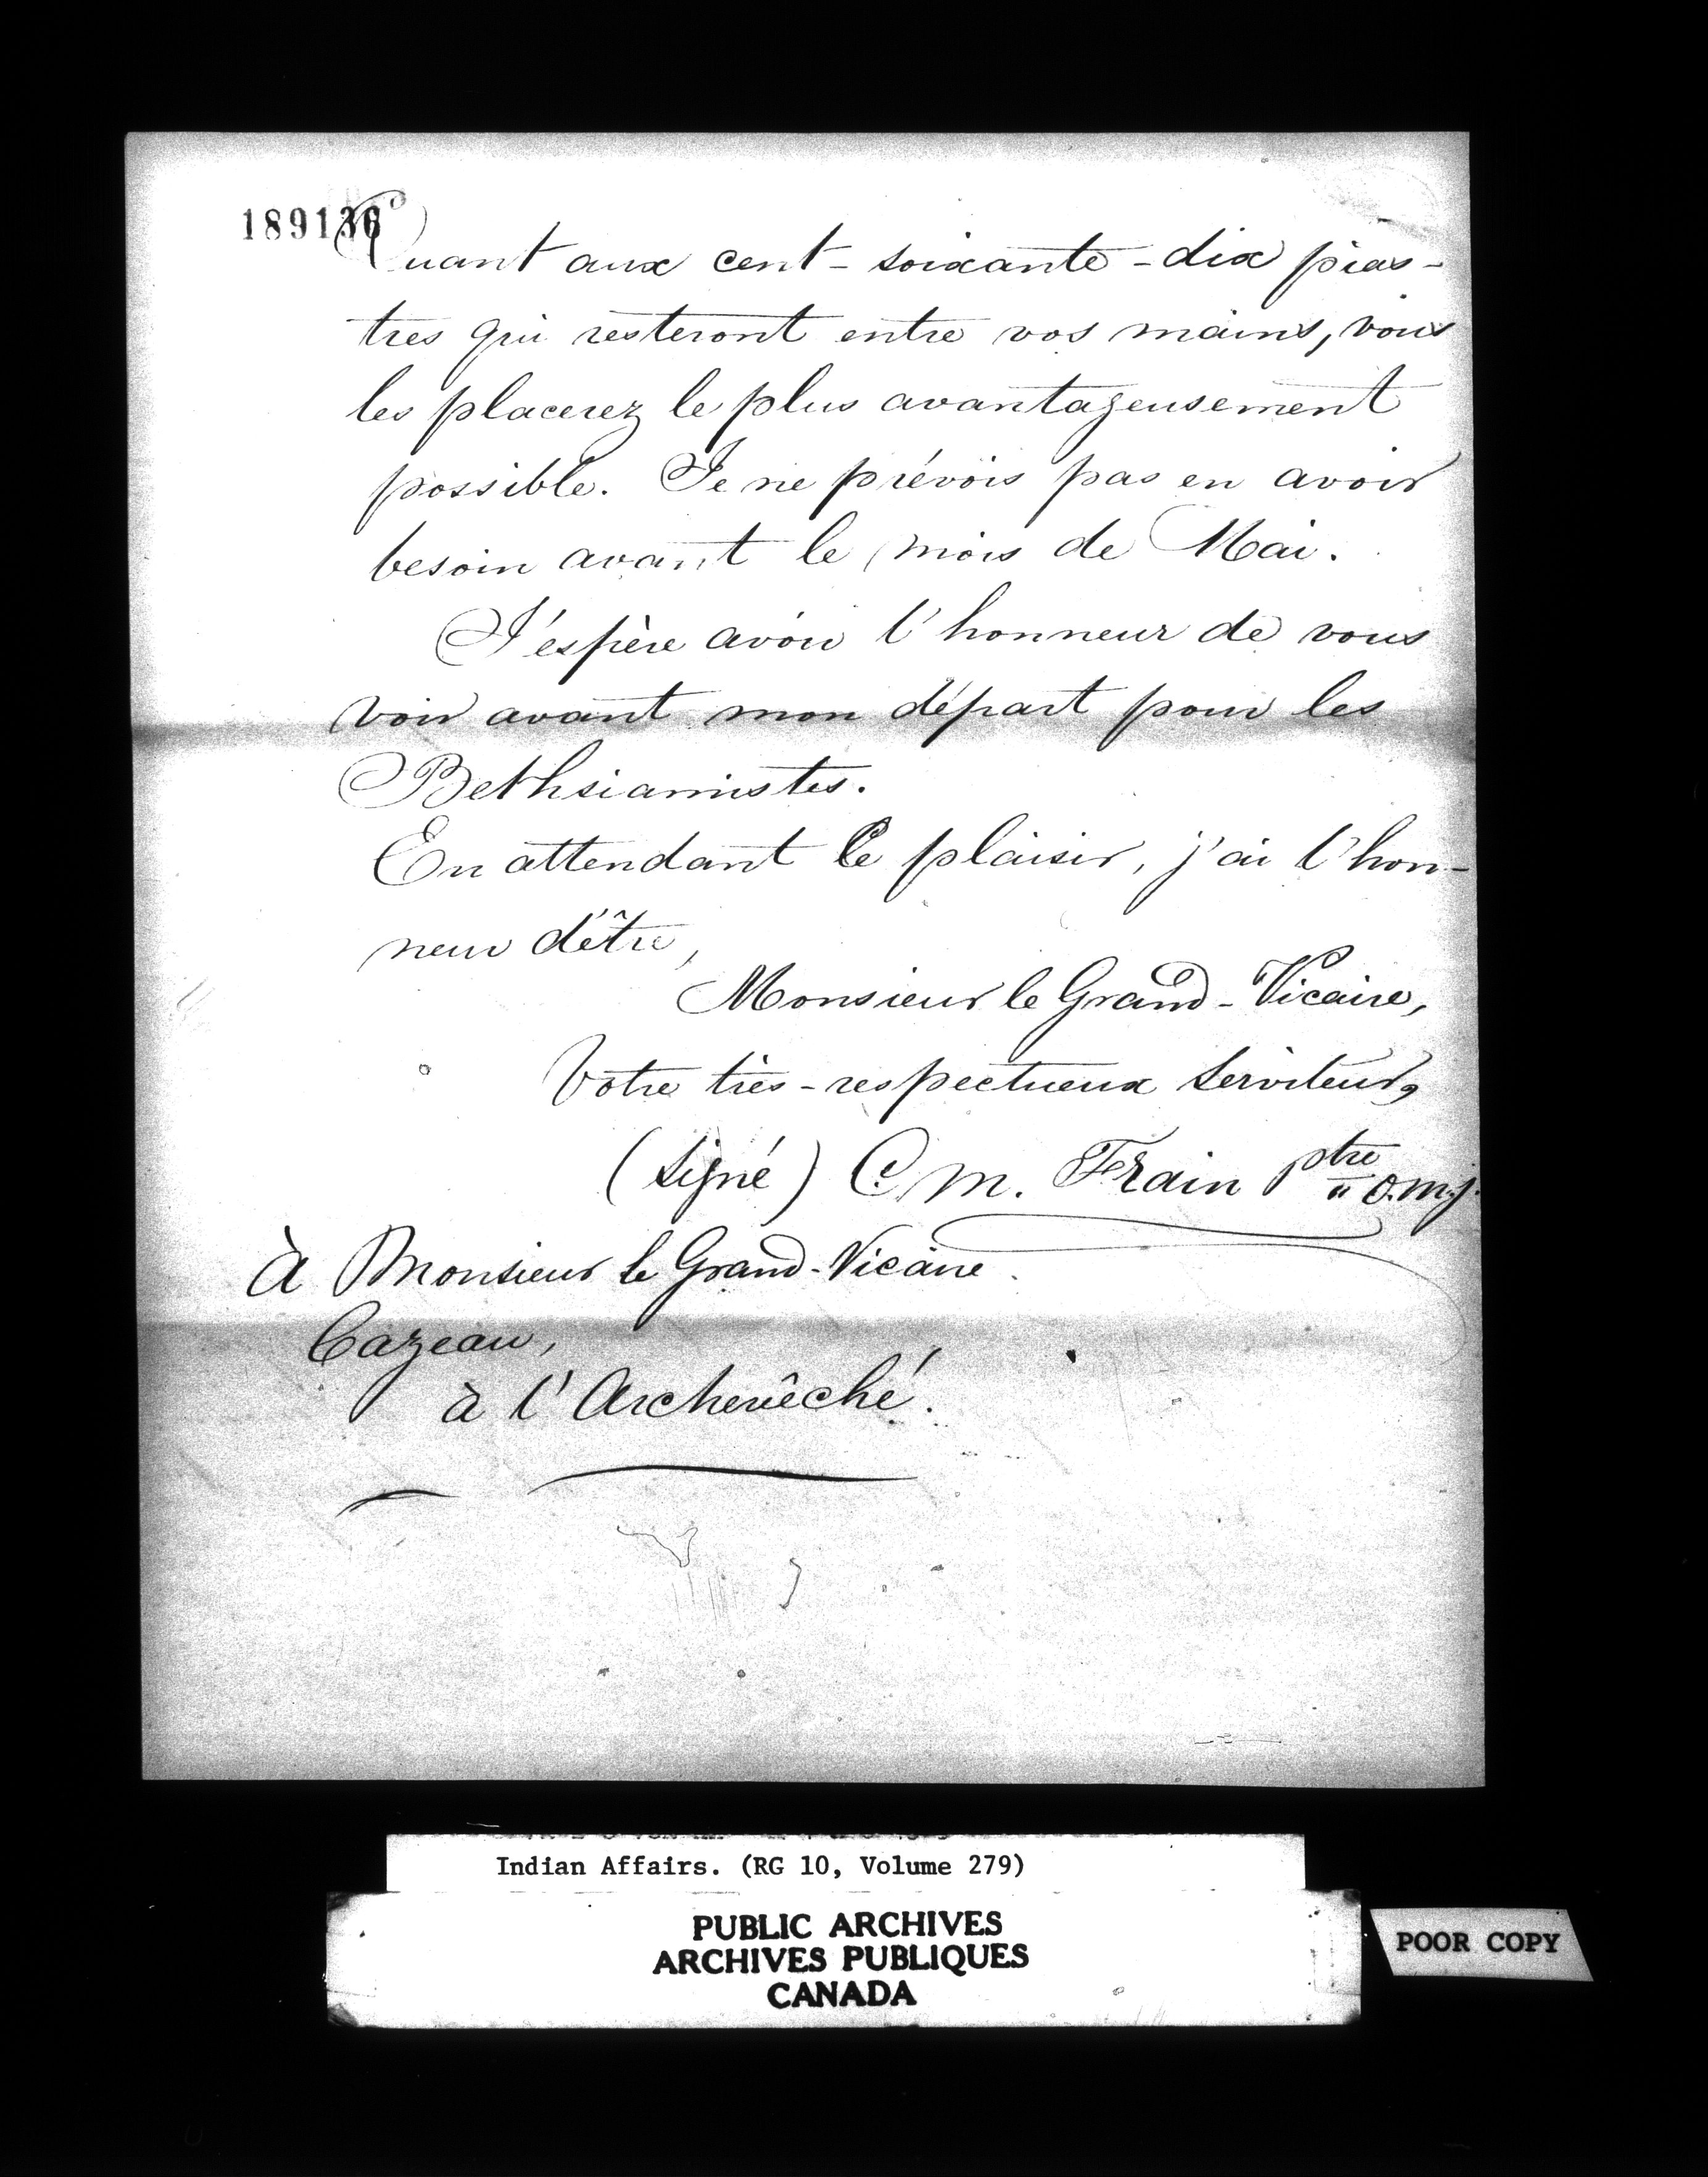 189136
Quant aux cent-soixante-dix pias-
tres qui resteront entre vos mains, vous
les placerez le plus avantageusement
possible. Je ne prévois pas en avoir
besoin avant le mois de Mai.
J'espère avoir l'honneur de vous
voir avant mon départ pour les
Bethsiamistes.
En attendant ce plaisir, j'ai l'hon-
neur d'être,
Monsieur le Grand-Vicaire,
Votre très-respectueux serviteur,
(signé) C. M. Frain ptre o.m.j.
à Monsieur le Grand-Vicaire
Cazeau,
à l'Archevêché.
Indian Affairs. (RG 10, Volume 279)
PUBLIC ARCHIVES
ARCHIVES PUBLIQUES
CANADA
POOR COPY